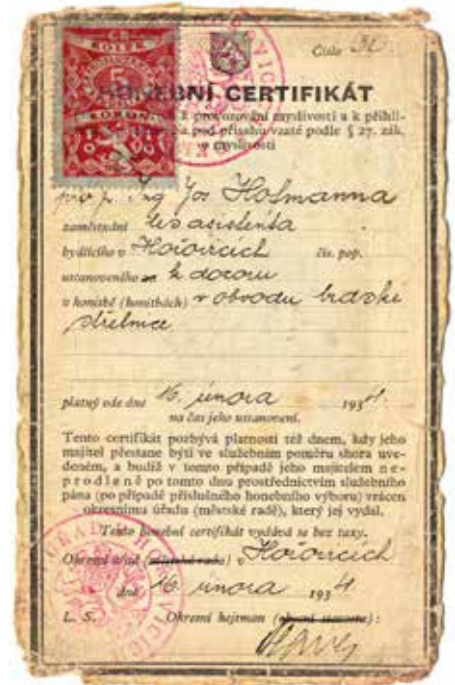 Číslo 30.
KOLEK
5
KORUN
HONEBNÍ CERTIFIKÁT
k provozování myslivosti a k přihlí-
pod přísahu vzaté podle § 27. zák.
o myslivosti
pro p. Ing Jos Hofmanna
zaměstnání les. asistenta
bydlícího v Hořovicích čís. pop.
ustanoveného k dozoru
v honitbě (honitbách) v obvodu brdské
střelnice
platný ode dne 16. února 1934.
na čas jeho ustanovení.
Tento certifikát pozbývá platnosti též dnem, kdy jeho
majitel přestane býti ve služebním poměru shora uve-
deném, a budiž v tomto případě jeho majitelem ne-
prodleně po tomto dnu prostřednictvím služebního
pána (po případě příslušného honebního výboru) vrácen
okresnímu úřadu (městské radě), který jej vydal.
Tento honební certifikát vydává se bez taxy.
Okresní úřad (městská rada) v Hořovicích
dne 16. února 1934
L. S. Okresní hejtman (obecní starosta):